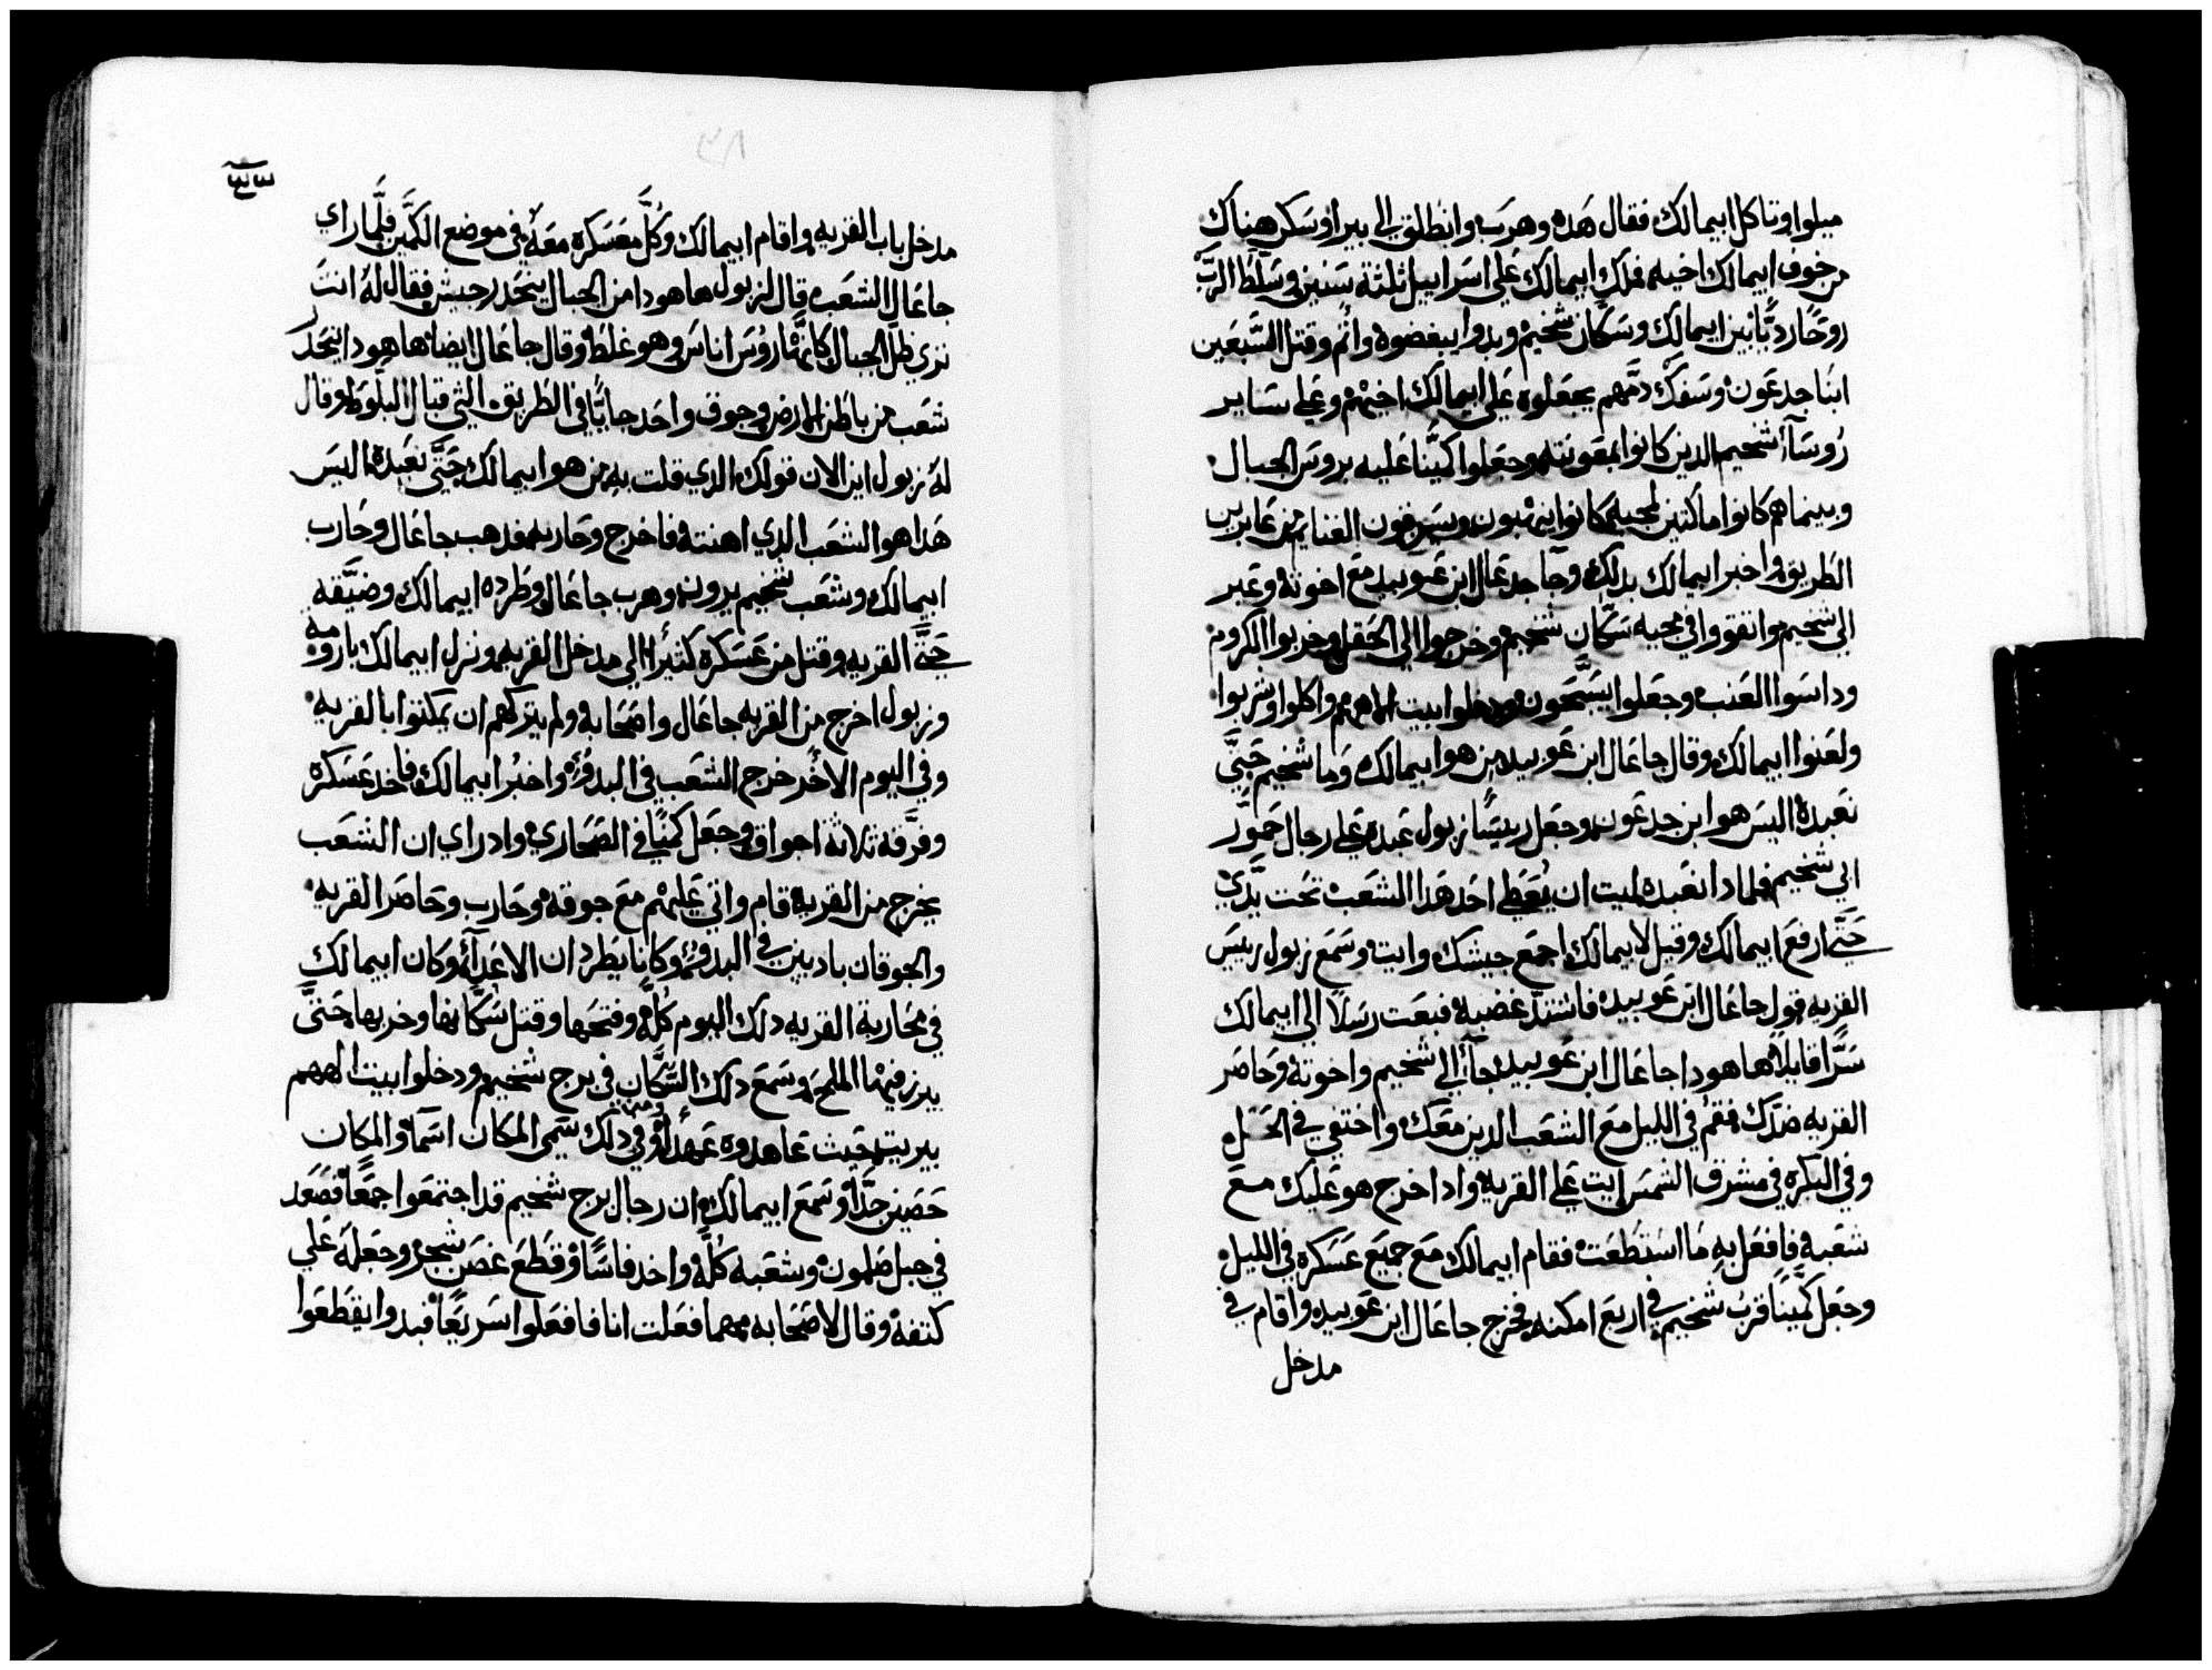 ميلو اوتاكل ابيمالك فقال هده وهرب وانطلق الى بيرا وسكن هناك
من خوف ابيمالك اخيه فملك ابيمالك على اسراييل ثلثة سنين وسلط الرب
روحًا رديًا بين ابيمالك وسكان شخيم وبدوا يبغضوه واثم وقتل السبعين
ابنا جدعون وسفك دمهم يجعلوه على ابيمالك اخيهم وعلى ساير
روسآ شخيم الدين كانوا بمعونته وجعلوا كمينًا عليه بروس الجبال
وبينما هم كانوا ماكثين لمجيه كانوا ينهبون ويسرقون الغنايم من عابرين
الطريق واخبر ابيمالك بدلك وجآ جدعال ابن عوبيد مع اخوته وعبر
الى شخيم واتفقوا في مجيه سكان شخيم وخرجوا الى الحقل وخربوا الكروم
وداسوا العنب وجعلوا يسبحون ودخلوا بيت الاههم واكلوا وشربوا
ولعنوا ابيمالك وقال جاعال ابن عوبيد من هو ابيمالك وما شخيم حتى
نعبده اليس هو ابن جدعون وجعل رييسًا زبول عبده على رجال حمور
ابي شخيم فلمادا نعبده ليت ان يُعطي احد هدا الشعب تحت يدي
حتى ارفع ابيمالك وقيل لابيمالك اجمع جيشك وايت وسمع زبول رييس
القريه قول جاعال ابن عوبيد فاشتد غضبه فبعت رسلا الى ابيمالك
سرًا قايلاً ها هودا جاعال ابن عوبيد جآ الى شخيم واخوته وحاصر
القريه ضدك فقم في الليل مع الشعب الدين معك واختفي في الحقل
وفي البكره في مشرق الشمس ايت على القريه وادا خرج هو عليك مع
شعبه فافعل به ما استطعت فقام ابيمالك مع جميع عسكره في الليل
وجعل كمينًا قرب شخيم في اربع امكنه فخرج جاعال ابن عوبيد واقام في
مدخل
مدخل باب القريه واقام ابيمالك وكل معسكره معه في موضع الكمين فلما راي
جاعال الشعب قال لزبول ها هودا من الجبال ينحدر جيش فقال له انت
تري ظل الجبال كانها روس اناس وهو غلط وقال جاعال ايضا ها هودا ينحدر
شعب من باطن الارض وجوق واحد جايًا في الطريق التي قبال البلوط وقال
له زبول اين الان قولك الدي قلت به من هو ابيمالك حتى نعبده اليس
هدا هو الشعب الدي اهنته فاخرج وحاربه فدهب جاعال وحارب
ابيمالك وشعب شخيم يرونه وهرب جاعال وطرده ابيمالك وضيقه
حتى القريه وقتل من عسكره كثيرًا الى مدخل القريه ونزل ابيمالك بارومه
وزبول اخرج من القريه جاعال واصحابه ولم يتركهم ان يمكثوا بالقريه
وفي اليوم الاخر خرج الشعب في البدو واخبر ابيمالك فاخد عسكره
وفرقه ثلاثة اجواق وجعل كمينًا في الصحاري واد راي ان الشعب
يخرج من القريه قام واتي عليهم مع جوقه وحارب وحاصر القريه
والجوقان بادين في البدو وكانا يطردان الاعدآ وكان ابيمالك
في محاربة القريه دلك اليوم كله وفتحها وقتل سكانها وخربها حتى
يبرز فيها الملح وسمع دلك السكان في برج شخيم ودخلوا بيت الاههم
بيريت حيث عاهدوه عهدًا له وفي دلك سمى المكان اسمًا والمكان
حصين جدًا وسمع ابيمالك ان رجال برج شخيم قد اجتمعوا جمعًا فصعد
في جبل صلمون وشعبه كله واخد فاسًا وقطع غصن شجر وجعله علي
كتفه وقال لاصحابه مهما فعلت انا فافعلوا سريعًا فبدوا يقطعوا